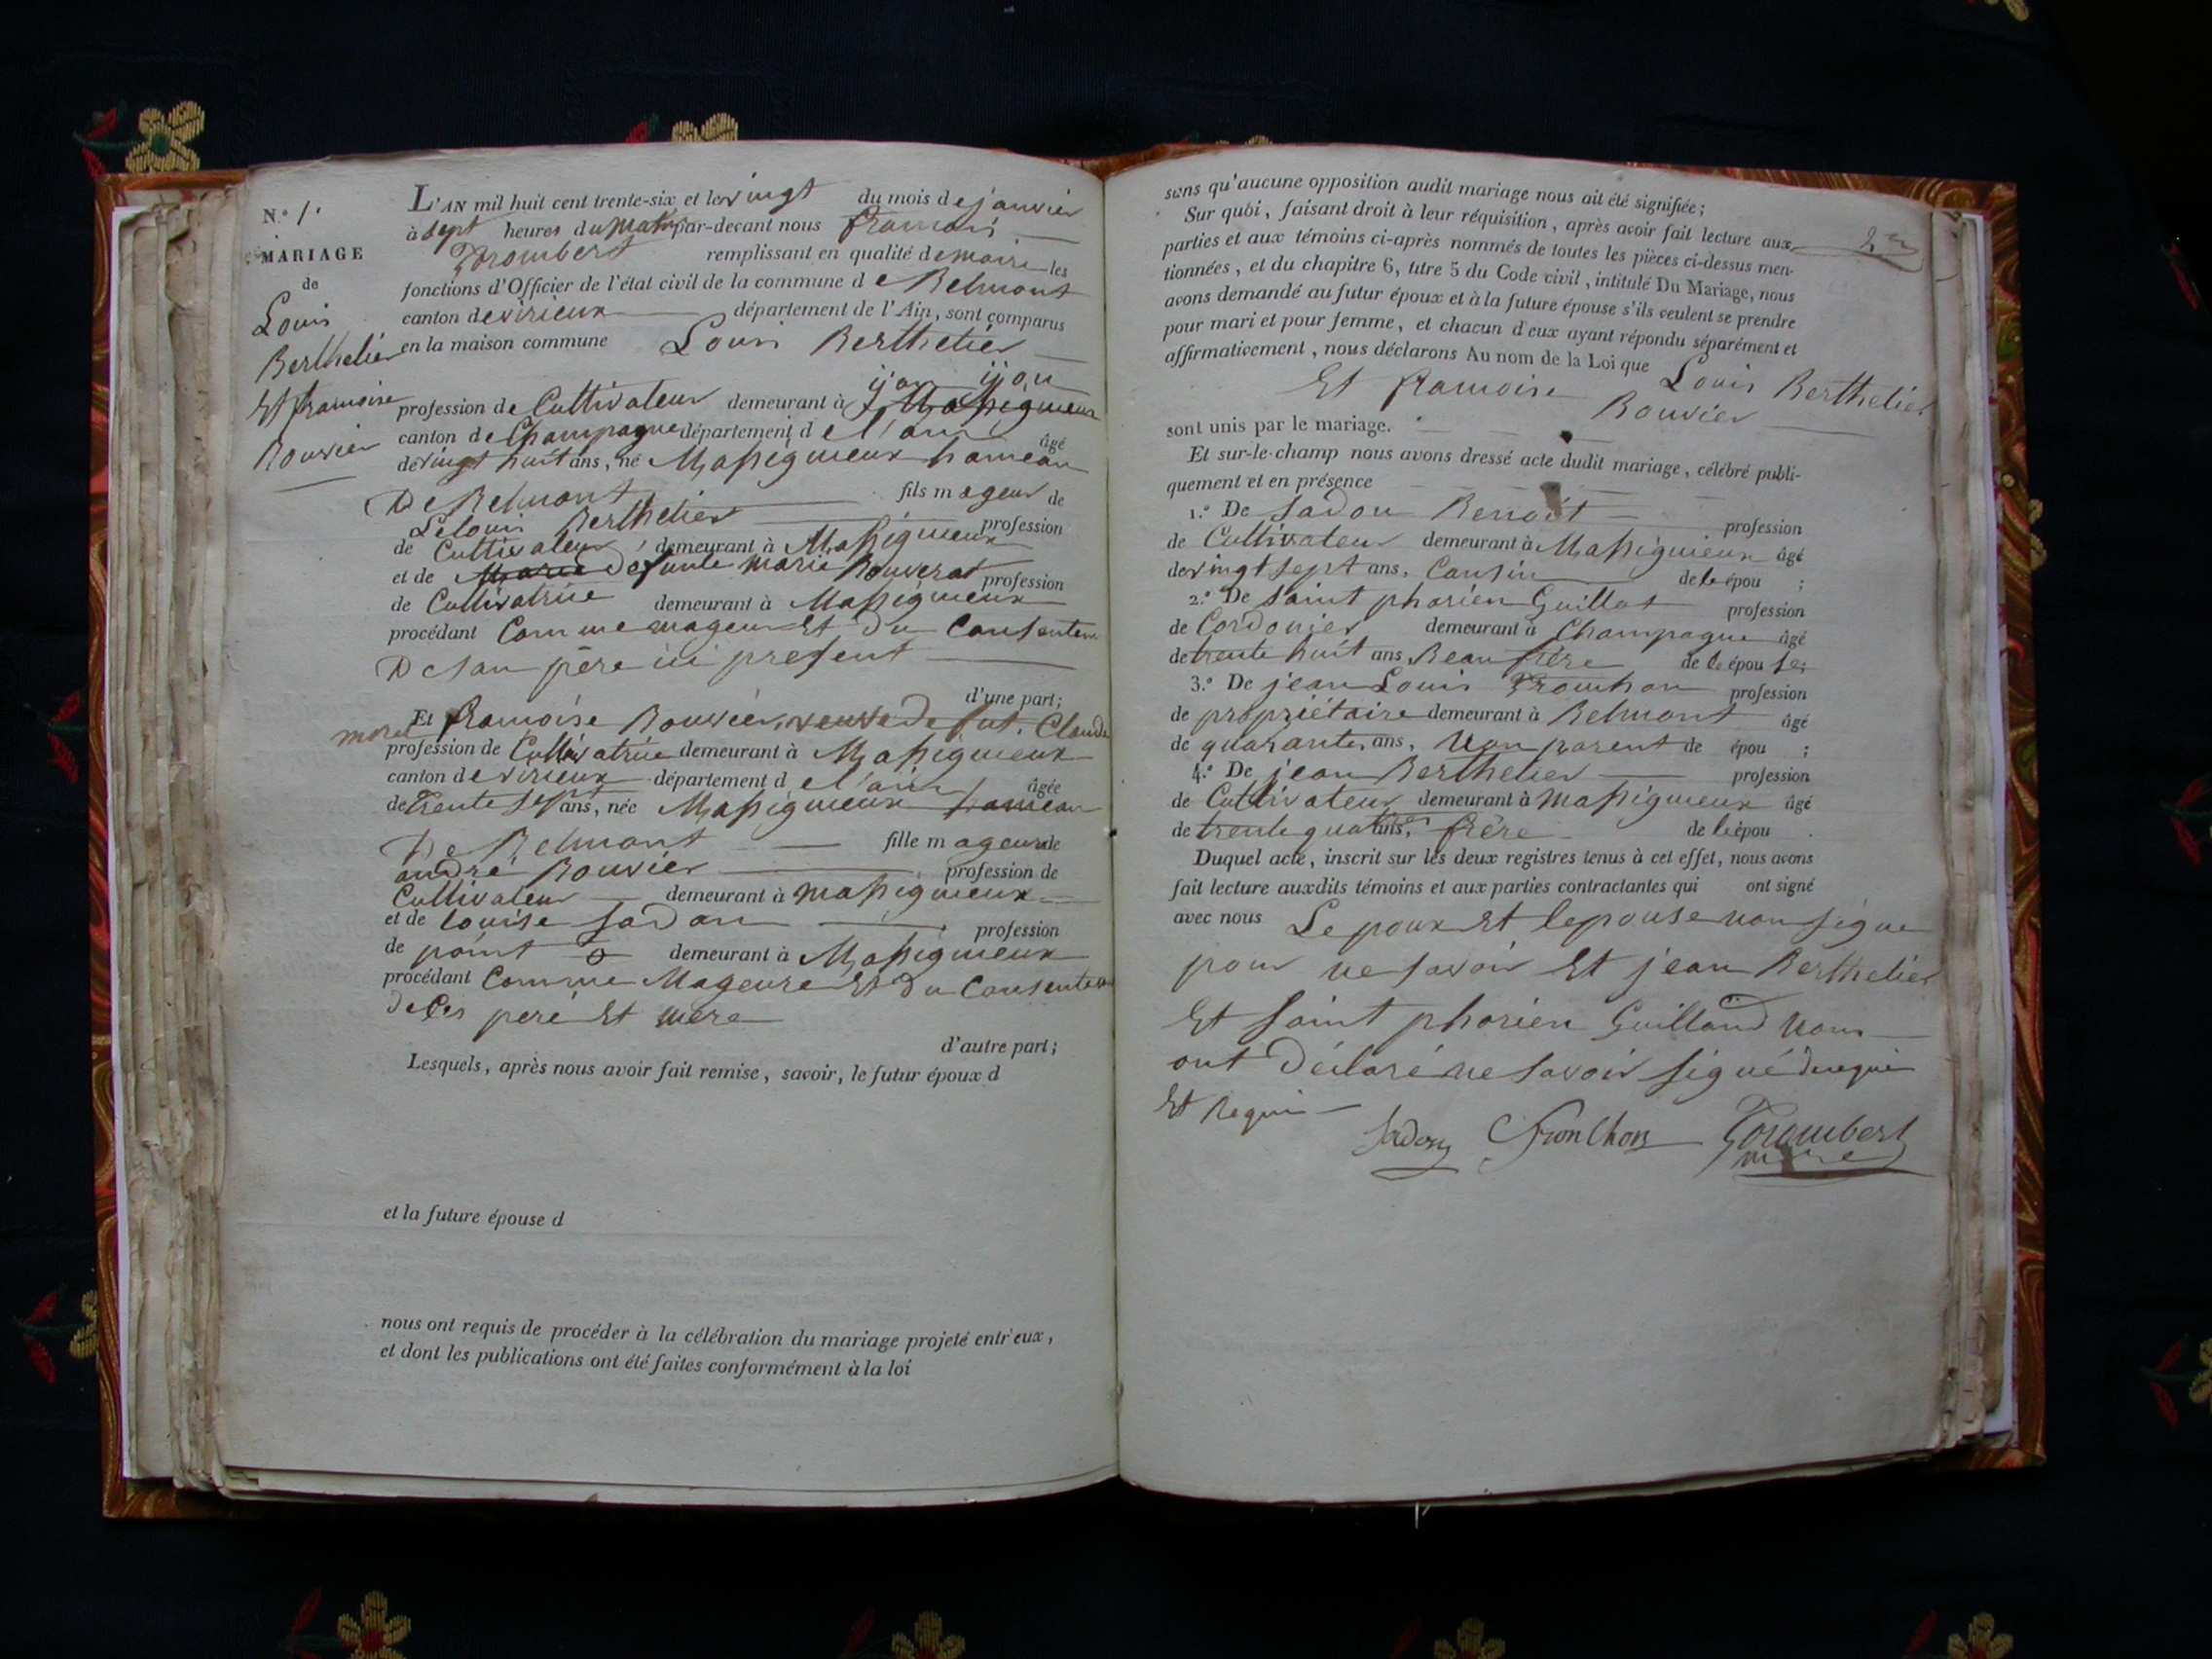 N.° 1.
MARIAGE
de
Louis
Berthelier
Et framoise
Rouvier
L'AN mil huit cent trente-six et le vingt du mois de janvier
à sept heures du matin par-devant nous framois
Trombert remplissant en qualité de maire les
fonctions d'Officier de l'état civil de la commune de Belmont
canton de virieux département de l'Ain, sont comparus
en la maison commune Louis Berthelier
profession de Cultivateur demeurant à Massignieux
canton de Champagne département de l'ain âgé
de vingt huit ans, né Massignieux hameau
De Belmont fils mageur de
Louis Berthelier profession
de Cultivateur demeurant à Massignieux
et de Marie Defunte Marie Rouverat profession
de Cultivatrice demeurant à Massignieux
procédant Comme mageur Et du Consentem
De san père ici present
d'une part;
Et framoise Rouvier, veuve de fut Claude
morel
profession de Cultivatrice demeurant à Massignieux
canton de virieux département de l'ain âgée
de Trente sept ans, née Massignieux hameau
De Belmont fille mageure de
andré Rouvier profession de
Cultivateur demeurant à massignieux
et de Louise Sadon profession
de point demeurant à Massignieux
procédant Comme Mageure Et du Consentem
de ces peré Et mere
d'autre part;
Lesquels, après nous avoir fait remise, savoir, le futur époux d
et la future épouse d
nous ont requis de procéder à la célébration du mariage projeté entr'eux,
et dont les publications ont été faites conformément à la loi
sans qu'aucune opposition audit mariage nous ait été signifiée;
Sur quoi, faisant droit à leur réquisition, après avoir fait lecture aux
parties et aux témoins ci-après nommés de toutes les pièces ci-dessus men-
tionnées, et du chapitre 6, titre 5 du Code civil, intitulé Du Mariage, nous
avons demandé au futur époux et à la future épouse s'ils veulent se prendre
pour mari et pour femme, et chacun d'eux ayant répondu séparément et
affirmativement, nous déclarons Au nom de la Loi que Louis Berthelier
Et framoise Rouvier
sont unis par le mariage.
Et sur-le-champ nous avons dressé acte dudit mariage, célébré publi-
quement et en présence
1.° De Sadon Benoit profession
de Cultivateur demeurant à Massignieux âgé
de vingt sept ans, Cousin de le épou ;
2.° De Saint phorien Guillot profession
de Cordonier demeurant à Champagne âgé
de trente huit ans, Beau frère de le épou se;
3.° De jean Louis Fronchon profession
de propriétaire demeurant à Belmont âgé
de quarante ans, Non parent de épou ;
4.° De jean Berthelier profession
de Cultivateur demeurant à Massignieux âgé
de trente quatre ans, frère de le épou .
Duquel acte, inscrit sur les deux registres tenus à cet effet, nous avons
fait lecture auxdits témoins et aux parties contractantes qui ont signé
avec nous Lepoux Et lepouse non signe
pour ne savoir Et jean Berthelier
Et Saint phorien Guilland Nous
ont déclaré ne savoir signé de
Et Requi
Sadon Fronchon Trombert